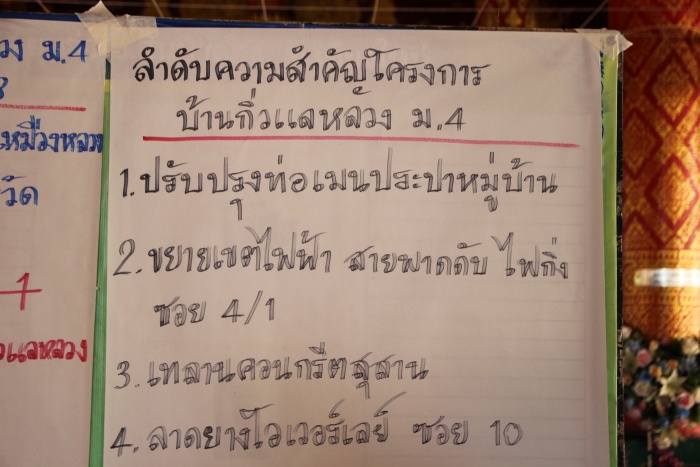 วง ม.4
8
เหมืองหลวง
วัด
1
วแลหลวง
ลำดับความสำคัญโครงการ
บ้านกิ่วแลหลวง ม.4
1.ปรับปรุงท่อเมนประปาหมู่บ้าน
2.ขยายเขตไฟฟ้า สายพาดดับ ไฟกิ่ง
ซอย 4/1
3.เทลานคอนกรีตสุสาน
4.ลาดยางโอเวอร์เลย์ ซอย 10